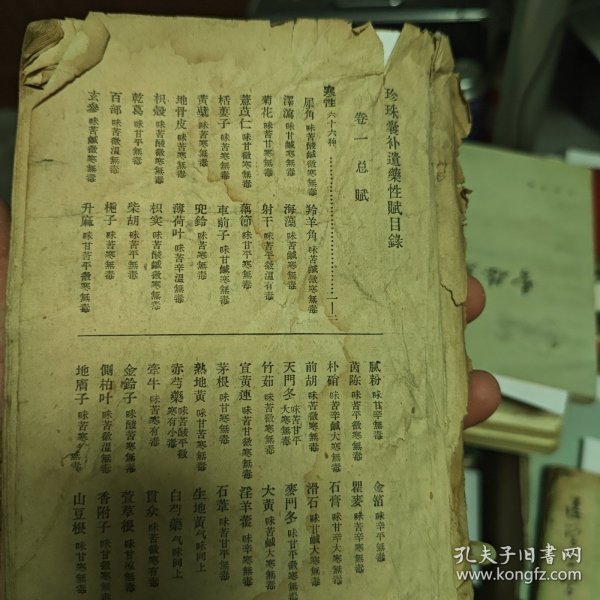 珍珠囊补遺藥性賦目錄
卷一 总賦
寒性 六十六种……一—二
犀角 味苦酸鹹寒無毒 羚羊角 味苦鹹寒無毒
澤瀉 味甘鹹寒無毒 海藻 味苦鹹寒無毒
菊花 味苦甘寒無毒 射干 味苦平微溫有毒
薏苡仁 味甘微寒無毒 藕節
栝蔞子 味苦寒無毒 車前子 味甘鹹寒無毒
黃蘗 味苦寒無毒 兜鈴 味苦寒無毒
地骨皮 味苦寒無毒 薄荷叶 味苦辛溫無毒
枳殼 味苦酸微寒無毒 枳实 味苦酸鹹微寒無毒
乾葛 味甘平無毒 柴胡 味苦平無毒
百部 味苦微溫無毒 梔子 味苦寒無毒
玄參 味苦鹹微寒無毒 升麻 味甘苦平微寒無毒
膩粉 味甘辛無毒 金箔 味辛平無毒
茵陈 味苦平微寒無毒 瞿麥 味苦辛寒無毒
朴硝 味苦辛鹹大寒無毒 石膏 味甘辛大寒無毒
前胡 味苦微寒無毒 滑石 味甘鹹大寒無毒
天門冬 味苦甘平大寒無毒 麥門冬 味甘平微寒無毒
竹茹 味苦微寒無毒 大黃 味苦鹹大寒無毒
宣黃連 味苦甘寒無毒 淫羊藿 味辛寒無毒
茅根 味甘寒無毒 石葦 味苦甘平無毒
熟地黃 味甘苦寒無毒 生地黃 气味同上
赤芍藥 味苦酸平微寒有小毒 白芍藥 气味同上
牽牛 味苦寒有毒 貫众 味苦微寒有毒
金鈴子 味酸苦寒無毒 萱草根 味甘凉無毒
側柏叶 味苦微溫無毒 香附子 味甘微寒無毒
地膚子 味苦寒無毒 山豆根 味甘寒無毒
孔夫子旧書网
www.kongfz.com